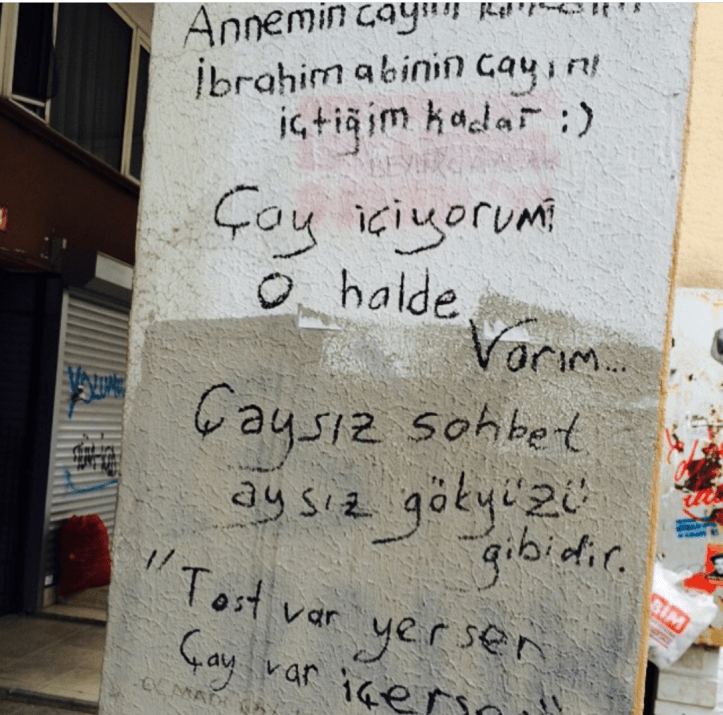 Annemin çayını
İbrahim abinin çayını
içtiğim kadar :)
Çay içiyorum
O halde
Varım...
Çaysız sohbet
aysız gökyüzü
gibidir.
"Tost var yersen
Çay var içersen"